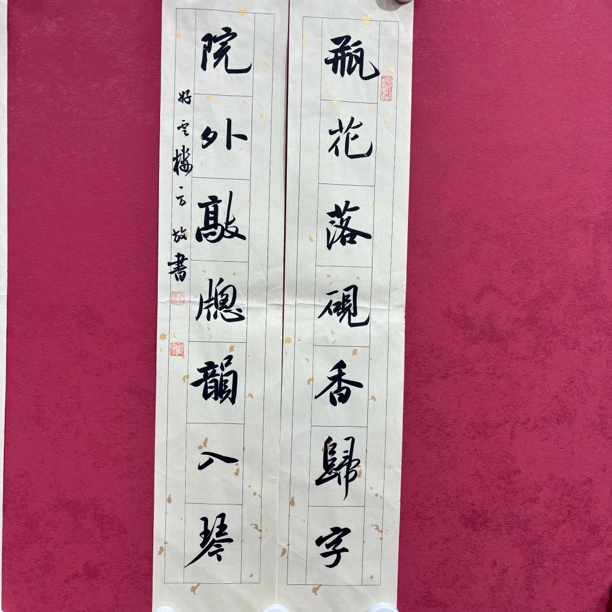 瓶花落硯香歸字
院外敲牕韻入琴
好雲樓
敬書